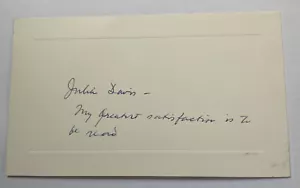 Julia Davis –
My greatest satisfaction is to
be read